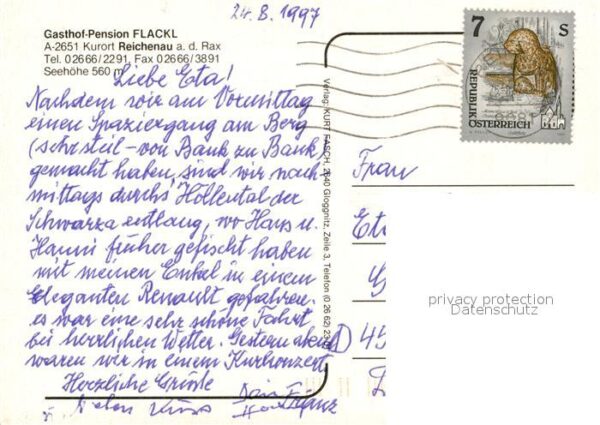 24.8.1997
Gasthof-Pension FLACKL
A-2651 Kurort Reichenau a. d. Rax
Tel. 0 26 66 / 2291, Fax 0 26 66 / 3891
Seehöhe 560 m
Liebe Eta!
Nachdem wir am Vormittag
einen Spaziergang am Berg
(sehr steil - von Bank zu Bank)
gemacht haben, sind wir nach
mittags durchs Höllental der
Schwarza entlang, wo Hans u.
Hanni früher gefischt haben
mit meinen Enkel in einem
eleganten Renault gefahren.
es war eine sehr schöne Fahrt
bei herrlichen Wetter. Gestern abend
waren wir in einem Kurkonzert
Herzliche Grüße
Franz
Verlag: KURT FASCH, 2640 Gloggnitz, Zeile 3, Telefon (0 26 62) 23
7 S
REPUBLIK
ÖSTERREICH
Frau
Et
D 45
privacy protection
Datenschutz